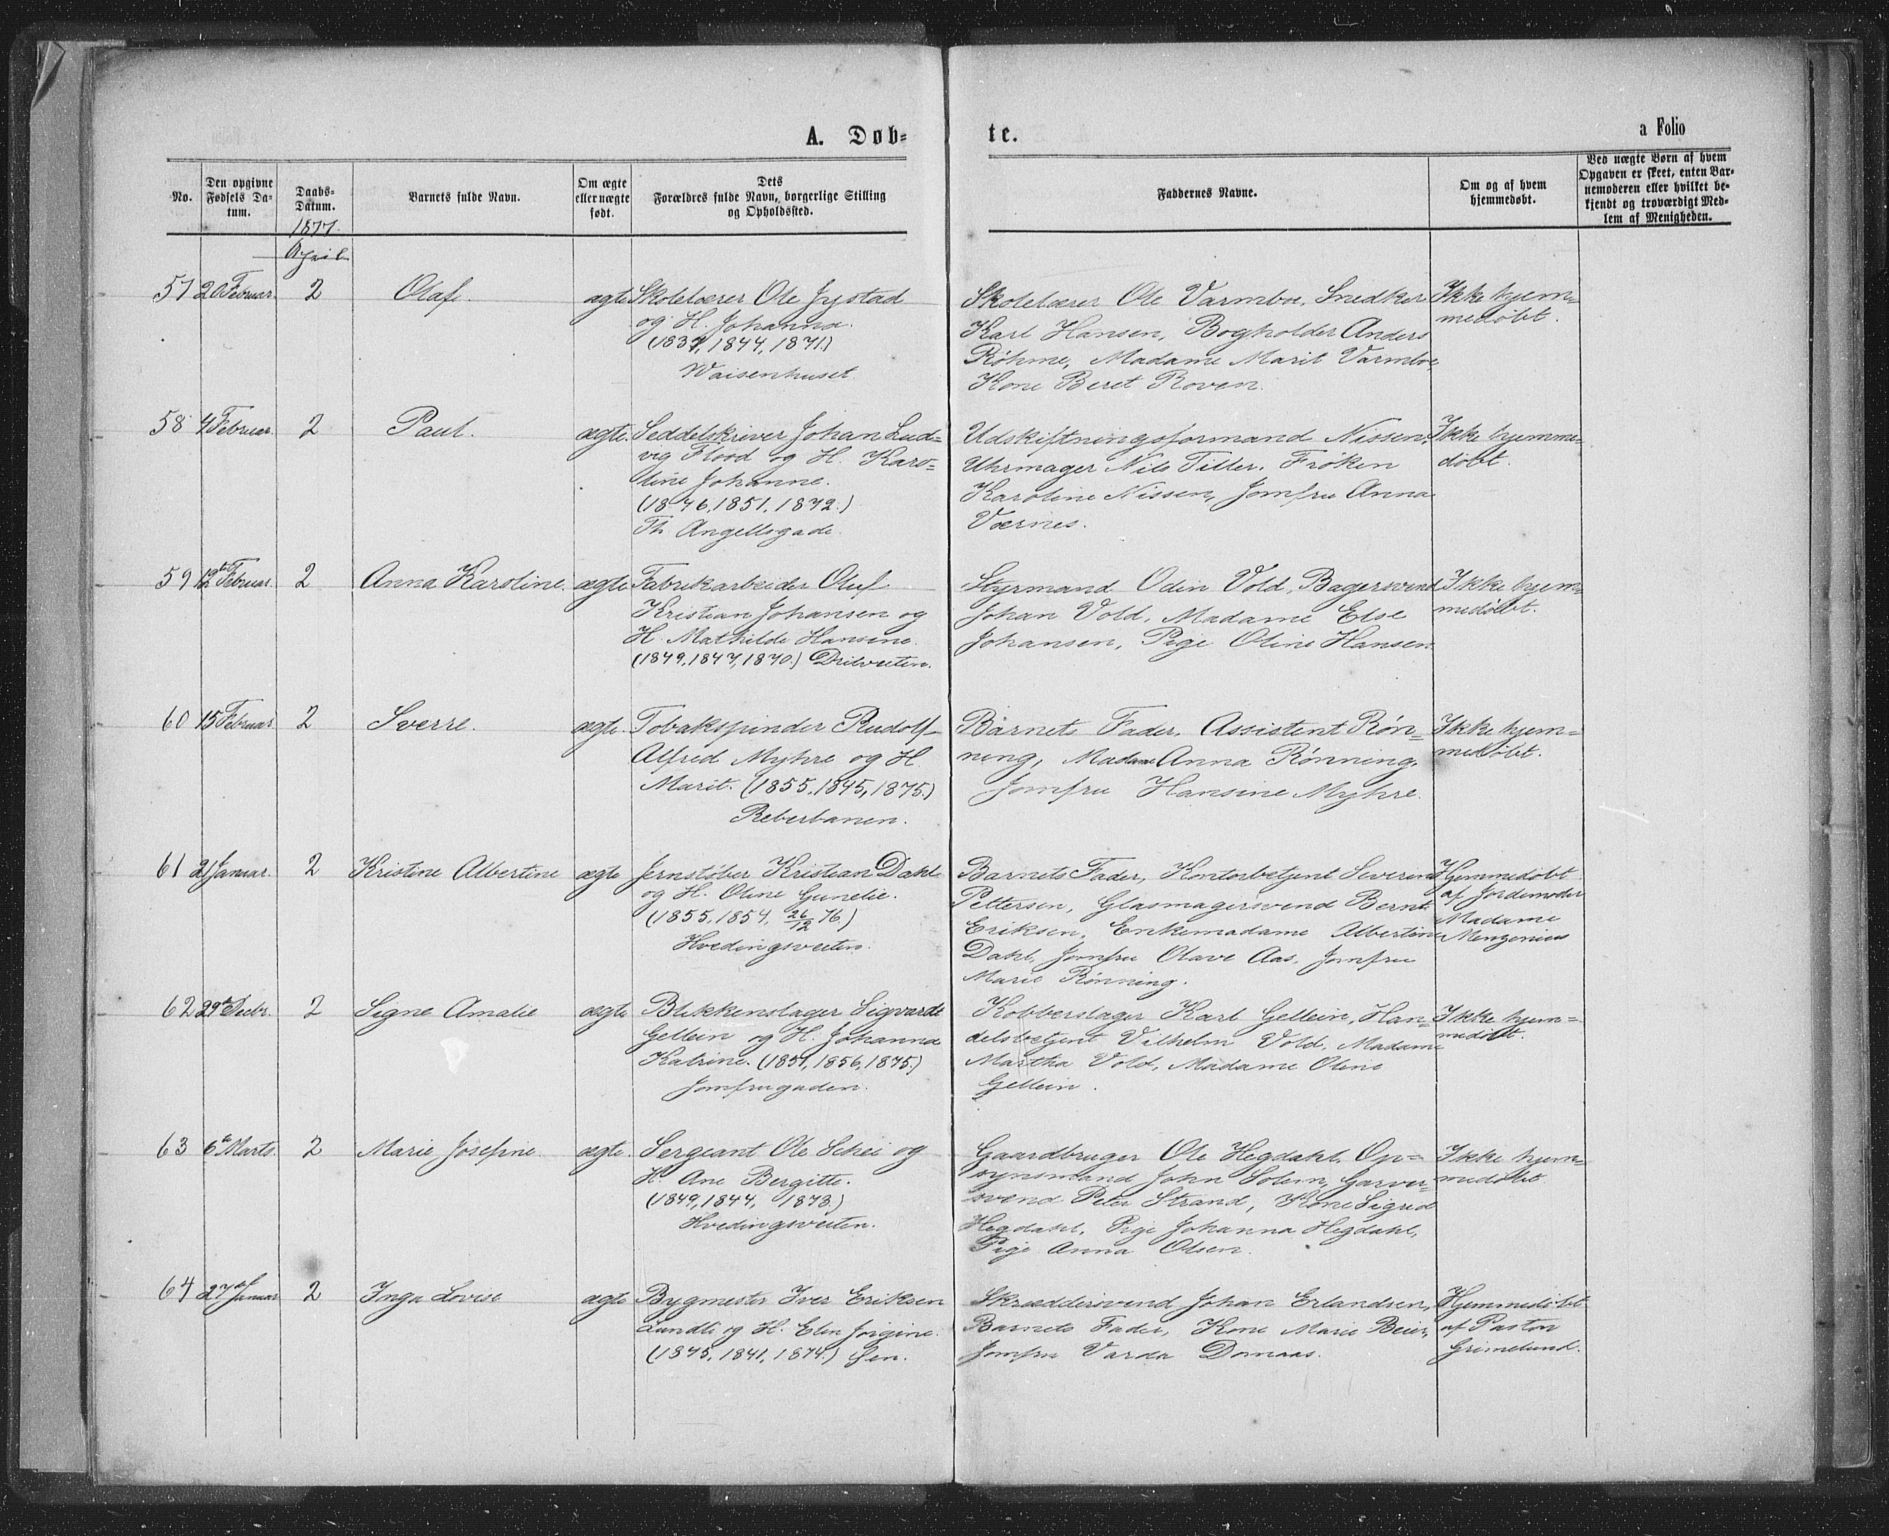 A. Døb-
te.
a Folio
No.
Den opgivne
Fødsels Da-
tum.
Daabs-
Datum.
Barnets fulde Navn.
Om ægte
eller uægte
født.
Dets
Forældres fulde Navn, borgerlige Stilling
og Opholdssted.
Faddernes Navne.
Om og af hvem
hjemmedøbt.
Ved uægte Børn af hvem
Opgaven er skeet, enten Bar-
nemoderen eller hvilket be-
kjendt og troværdigt Med-
lem af Menigheden.
1877.
April
57 20 Februar. 2 Olaf. ægte
Skolelærer Ole Jystad
og H. Johanna.
(1837, 1844, 1871.)
Waisenhuset.
Skolelærer Ole Varmboe, Snedker
Karl Hansen, Bogholder Anders
Røhme, Madame Marit Varmboe
Kone Beret Roven.
Ikke hjem-
medøbt.
58 4 Februar. 2 Paul. ægte.
Seddelskriver Johan Lud-
vig Flood og H. Karo-
line Johanne.
(1846, 1851, 1872.)
Th. Angellsgade.
Udskiftningsformand Nissen,
Uhrmager Nils Tiller, Frøken
Karoline Nissen, Jomfru Anna
Værnes.
Ikke hjemme-
døbt.
59 12te Februar. 2 Anna Karoline. ægte
Fabrikarbeider Oluf
Kristian Johansen og
H. Mathilde Hansine.
(1849, 1847, 1870.) Drilveiten.
Styrmand Odin Vold, Bagersvend
Johan Vold, Madame Else
Johansen, Pige Oline Hansen.
Ikke hjem-
medøbt.
60 15 Februar. 2 Sverre. ægte.
Tobakspinder Rudolf
Alfred Myhre og H.
Marit. (1855, 1845, 1875.)
Reberbanen.
Barnets Fader, Assistent Røn-
ning, Madame Anna Rønning,
Jomfru Hansine Myhre.
Ikke hjem-
medøbt.
61 21 Januar. 2 Kristine Albertine ægte
Jernstøber Kristian Dahl
og H. Oline Gunelie.
(1855, 1854, 26/12 76)
Hvedingsveiten.
Barnets Fader, Kontorbetjent Severin
Pettersen, Glasmagersvend Bernt
Eriksen, Enkemadame Albertine
Dahl, Jomfru Olave Aas, Jomfru
Marie Rønning.
Hjemmedøbt
af Jordemoder
Madame
62 29de Decbr. 2 Signe Amalie ægte
Blikkenslager Sigvarde
Gellein og H. Johanna
Katrine. (1851, 1856, 1875.)
Jomfrugaden.
Kobberslager Karl Gellein, Han-
delsbetjent Vilhelm Vold, Madame
Martha Vold, Madame Oline
Gellein.
Ikke hjem-
medøbt.
63 6te Marts. 2 Marie Josefine ægte.
Sergeant Ole Schei og
H. Ane Bergitte.
(1849, 1844, 1873)
Hvedingsveiten.
Gaardbruger Ole Hegdahl, Op-
synsmand John Solem, Garver-
svend Peter Strand, Kone Sigrid
Hegdahl, Pige Johanna Hegdahl,
Pige Anna Olsen.
Ikke hjem-
medøbt
64 27de Januar 2 Inga Lovise ægte
Bygmester Iver Eriksen
Lundli og H. Elen Jorgine.
(1845, 1841, 1874.) Ilen.
Skræddersvend Johan Erlandsen,
Barnets Fader, Kone Marie Beier,
Jomfru Varda Domaas.
Hjemmedøbt
af Pastor
Grimelund.